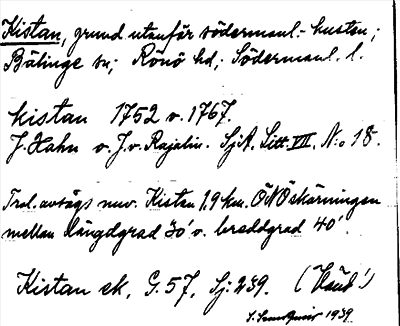 Kistan, grund utanför södermanl. kusten;
Bälinge sn; Rönö hd; Södermanl. l.
kistan 1752 o. 1767.
J. Hahn o. J. v. Rajalin. SjA. Litt. VII, N:o 18.
Trol. avtags nuv. Kistan 1,9 km. ÖNÖ skärningen
mellan längdgrad 30' o. breddgrad 40'.
Kistan ek. G. 57, Sj: 239.
1939